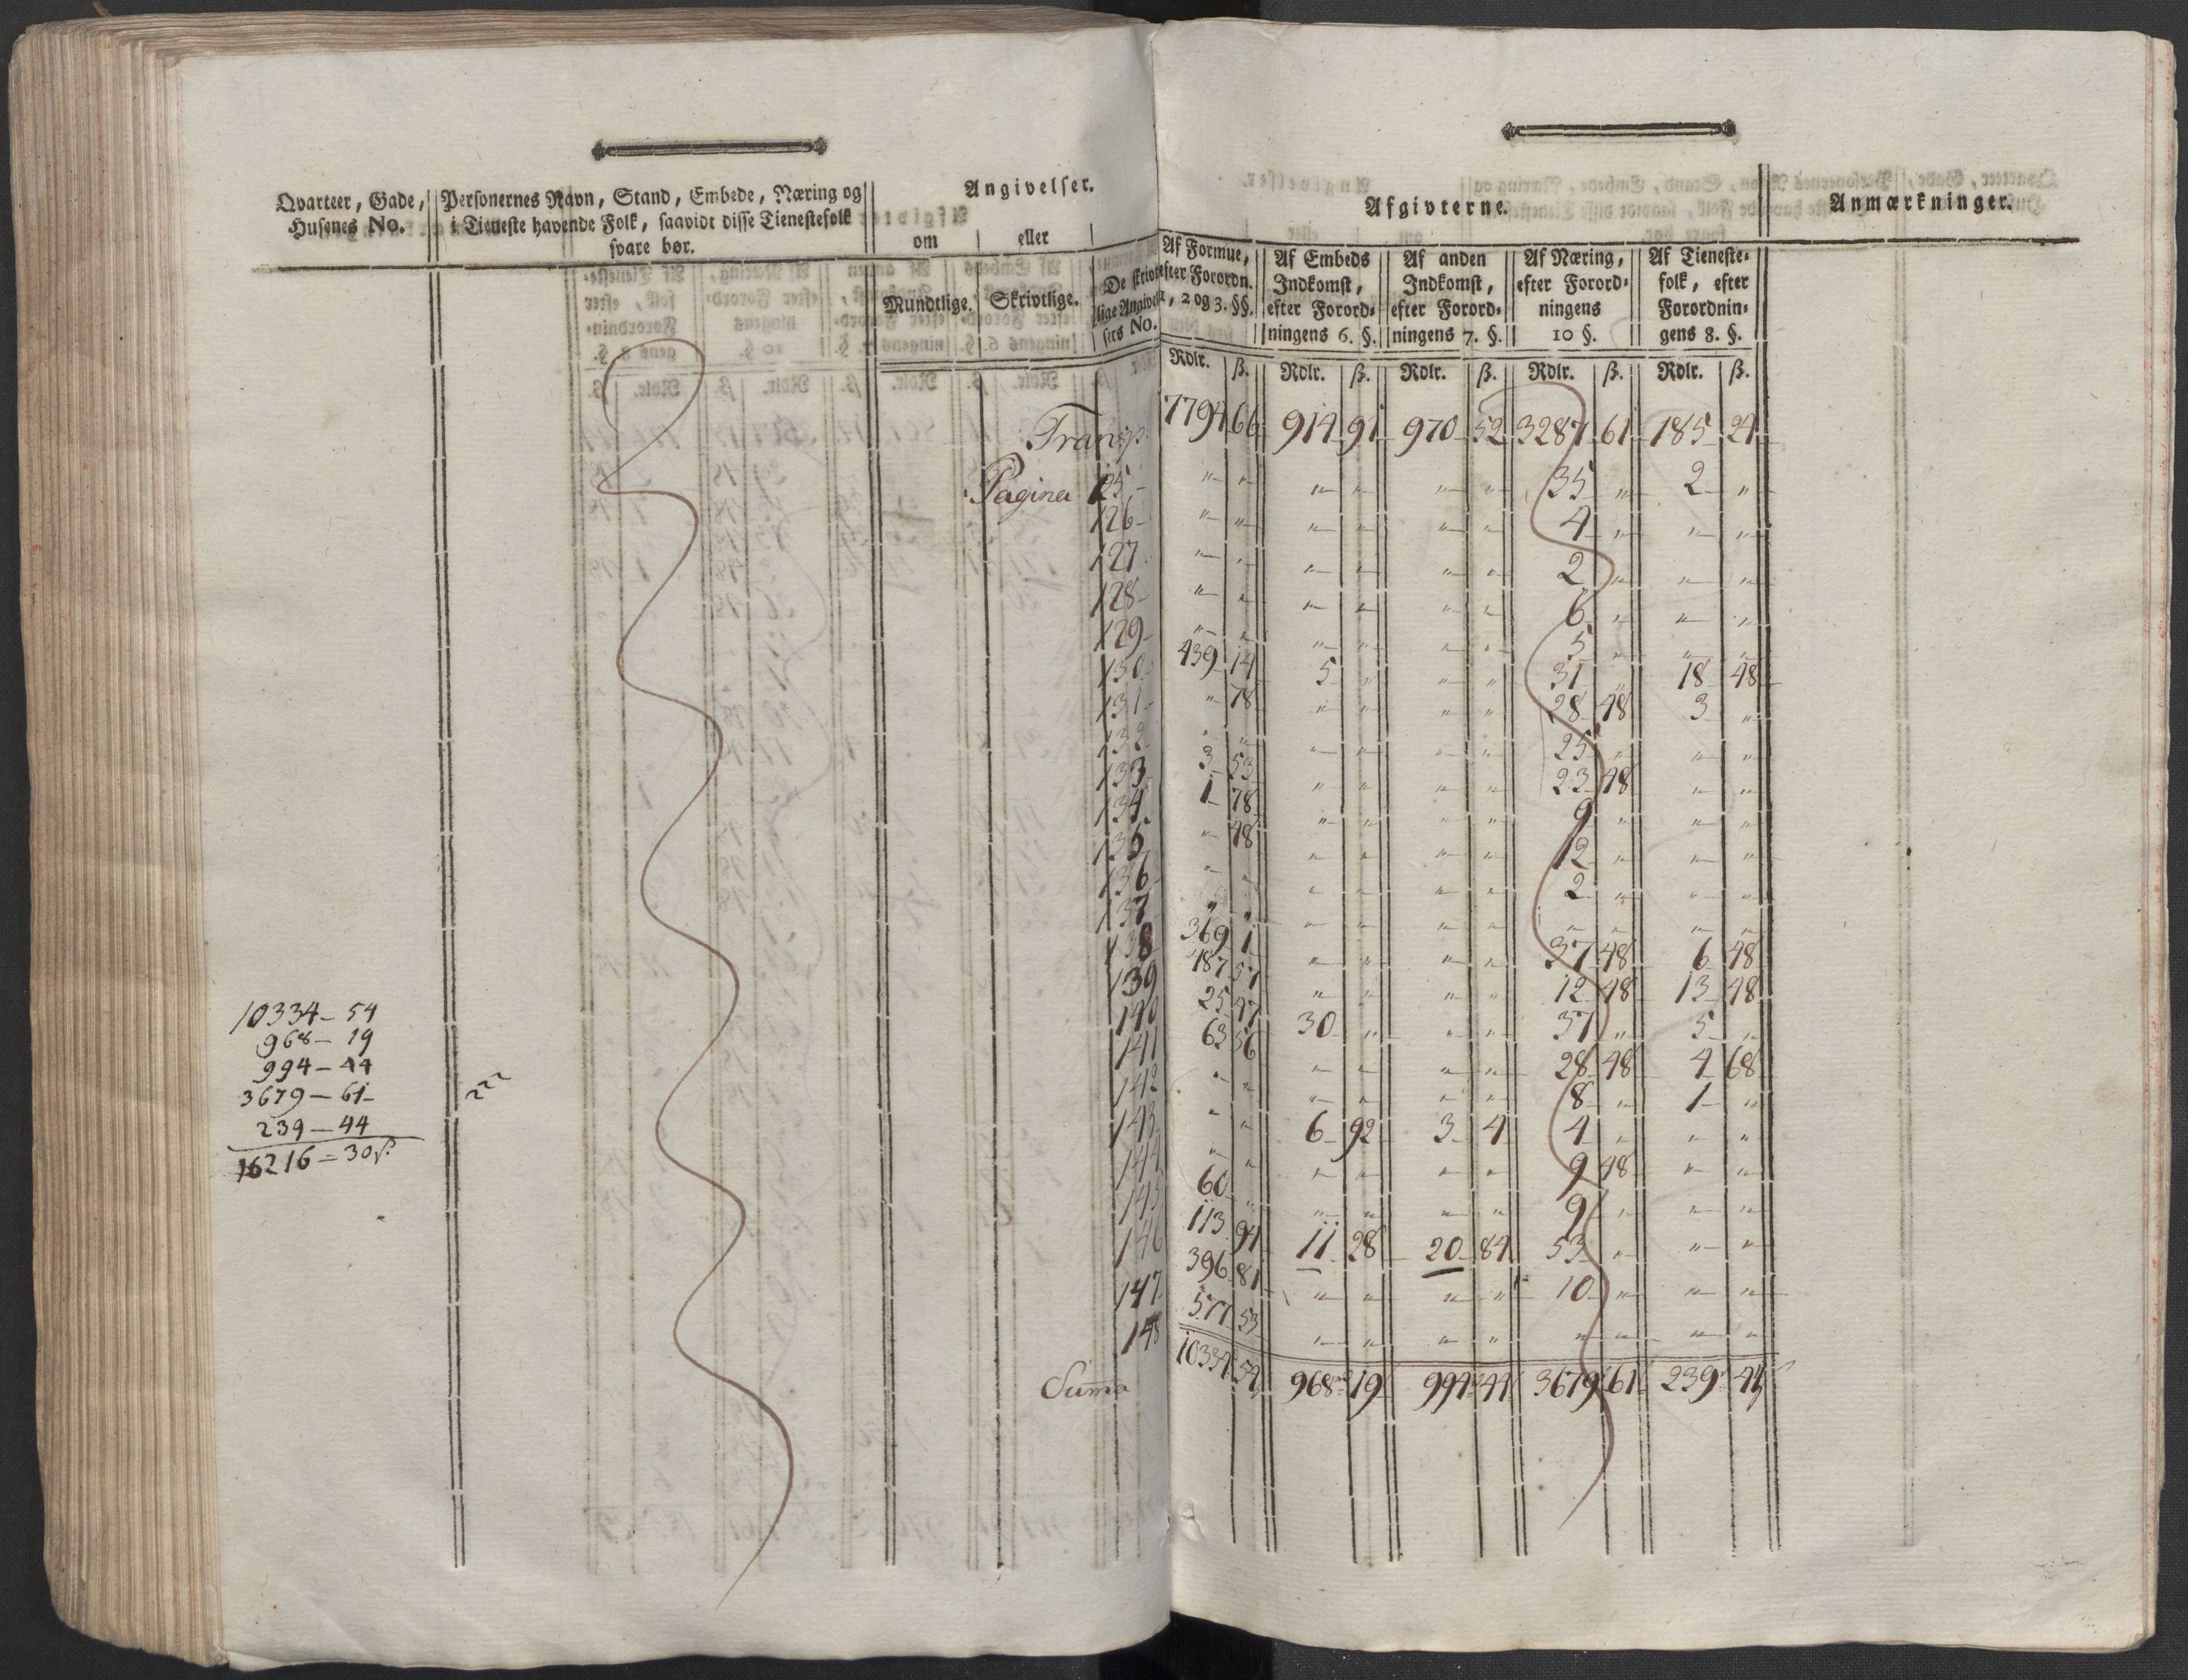 Qvarteer, Gade,
Husenes No.
Personernes Navn, Stand, Embede, Næring og
i Tieneste havende Folk, saavidt disse Tienestefolk
svare bør.
Angivelser.
om eller
Mundtlige. Skrivtlige. De skrivt-
lige Angivel-
sers No.
Afgivterne.
Af Formue,
efter Forordn.
1, 2 og 3. §§.
Af Embeds
Indkomst,
efter Forord-
ningens 6. §.
Af anden
Indkomst,
efter Forord-
ningens 7. §.
Af Næring,
efter Forord-
ningens
10 §.
Af Tieneste-
folk, efter
Forordnin-
gens 8. §.
Anmærkninger.
Rdlr. ß. Rdlr. ß. Rdlr. ß. Rdlr. ß. Rdlr. ß.
Transp. 7794 66 914 91 970 52 3287 61 185 24
Pagina 125 " " " " " " 35 " 2 "
126 " " " " " " 4 " " "
127 " " " " " " 2 " " "
128 " " " " " " 6 " " "
129 " " " " " " 5 " " "
130 439 14 5 " " " 31 " 18 48
131 " 78 " " " " 28 48 3 "
132 " " " " " " 25 " " "
133 3 53 " " " " 23 48 " "
134 1 78 " " " " 9 " " "
135 " 48 " " " " 12 " " "
136 " " " " " " 2 " " "
137 " " " " " " " " " "
138 369 1 " " " " 37 48 6 48
139 187 57 " " " " 12 48 13 48
140 25 47 30 " " " 37 " 5 "
141 63 56 " " " " 28 48 4 68
142 " " " " " " 8 " 1 "
143 " " 6 92 3 4 4 " " "
144 " " " " " " 9 48 " "
145 60 " " " " " 9 " " "
146 113 94 11 28 20 84 53 " " "
147 396 81 " " " " 10 " " "
148 577 53 " " " " " " " "
Summa 10334 54 968 19 994 44 3679 61 239 44
10334 – 54
968 – 19
994 – 44
3679 – 61
239 – 44
16216 = 30 ß.